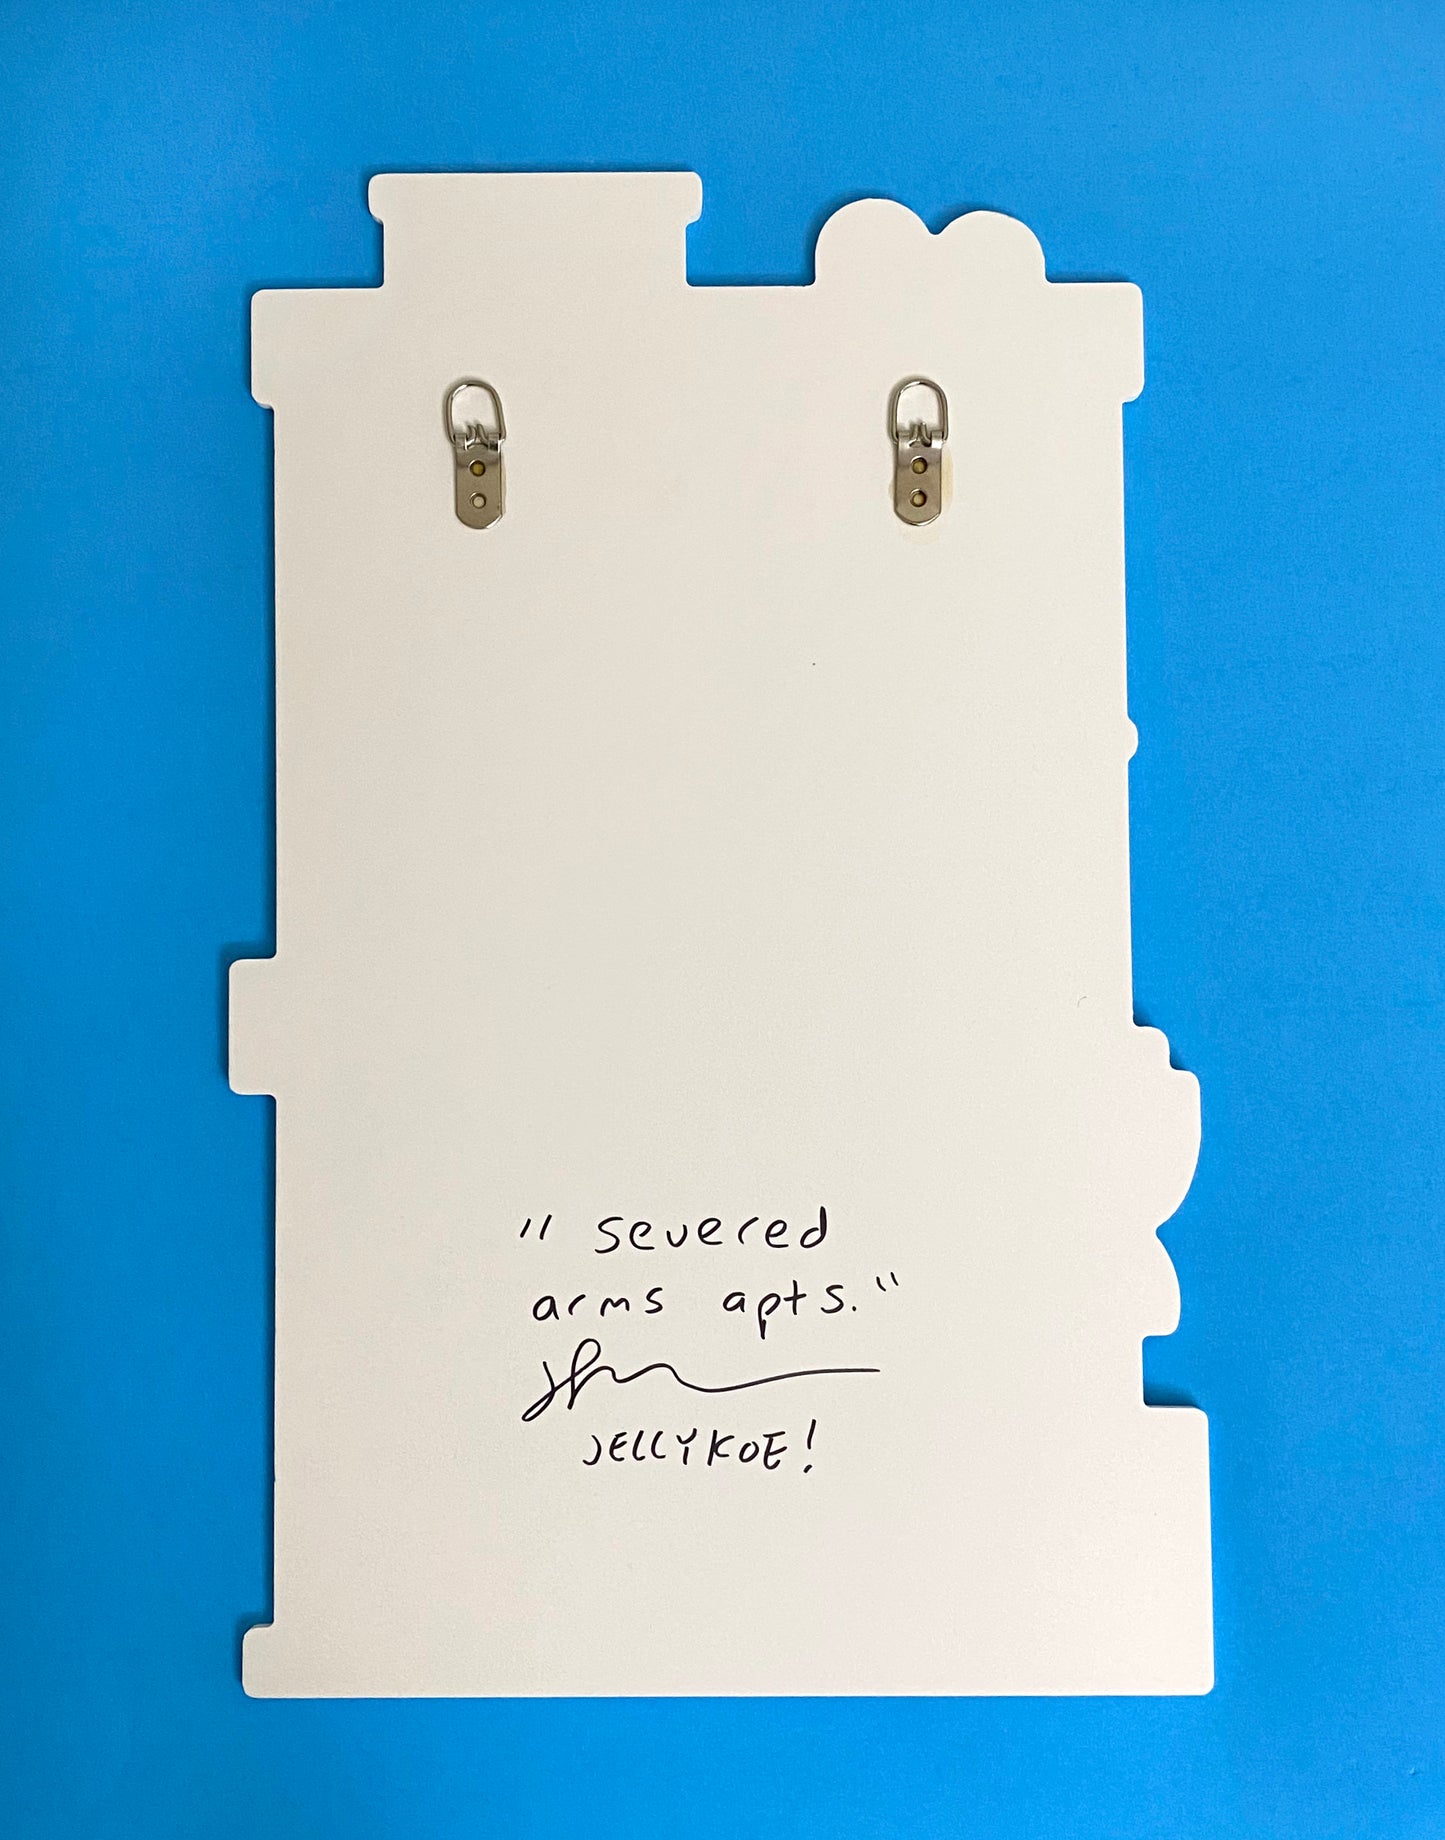 "severed
arms apts."
JELLYKOE!